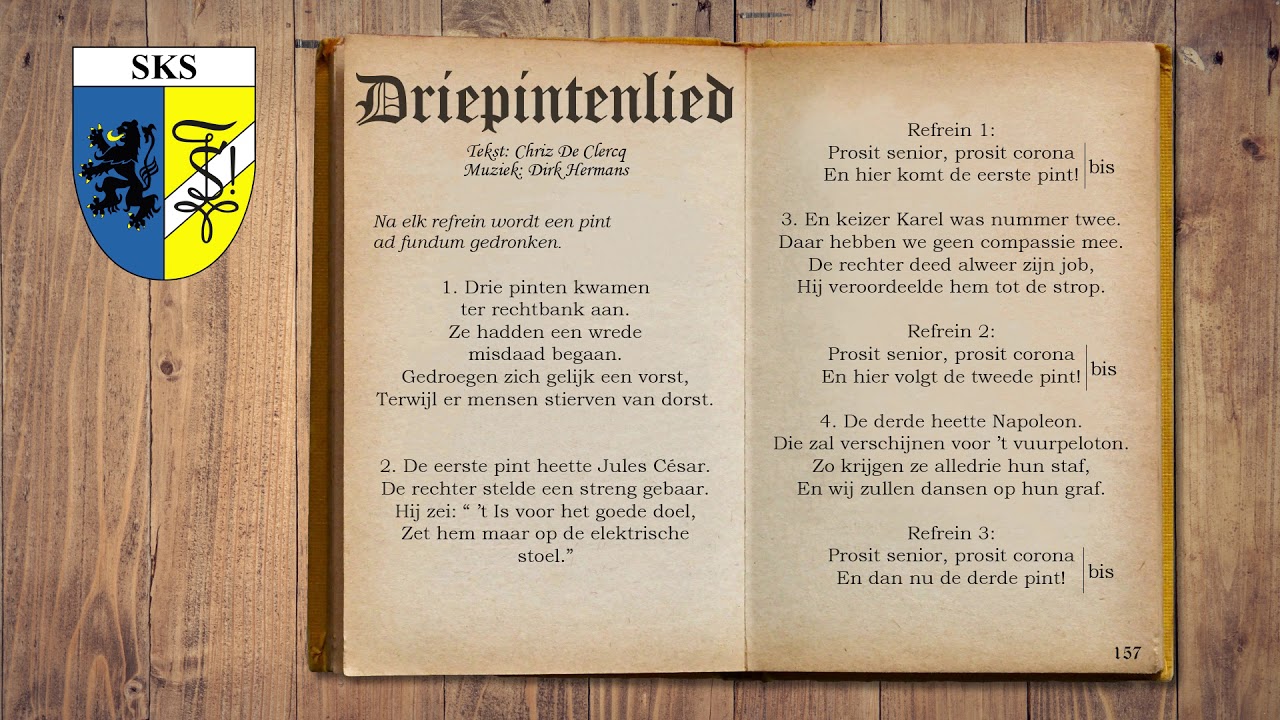 SKS
Driepintenlied
Tekst: Chriz De Clercq
Muziek: Dirk Hermans
Na elk refrein wordt een pint
ad fundum gedronken.
1. Drie pinten kwamen
ter rechtbank aan.
Ze hadden een wrede
misdaad begaan.
Gedroegen zich gelijk een vorst,
Terwijl er mensen stierven van dorst.
2. De eerste pint heette Jules César.
De rechter stelde een streng gebaar.
Hij zei: “ ’t Is voor het goede doel,
Zet hem maar op de elektrische
stoel.”
Refrein 1:
Prosit senior, prosit corona
En hier komt de eerste pint!
bis
3. En keizer Karel was nummer twee.
Daar hebben we geen compassie mee.
De rechter deed alweer zijn job,
Hij veroordeelde hem tot de strop.
Refrein 2:
Prosit senior, prosit corona
En hier volgt de tweede pint!
bis
4. De derde heette Napoleon.
Die zal verschijnen voor ’t vuurpeloton.
Zo krijgen ze alledrie hun staf,
En wij zullen dansen op hun graf.
Refrein 3:
Prosit senior, prosit corona
En dan nu de derde pint!
bis
157